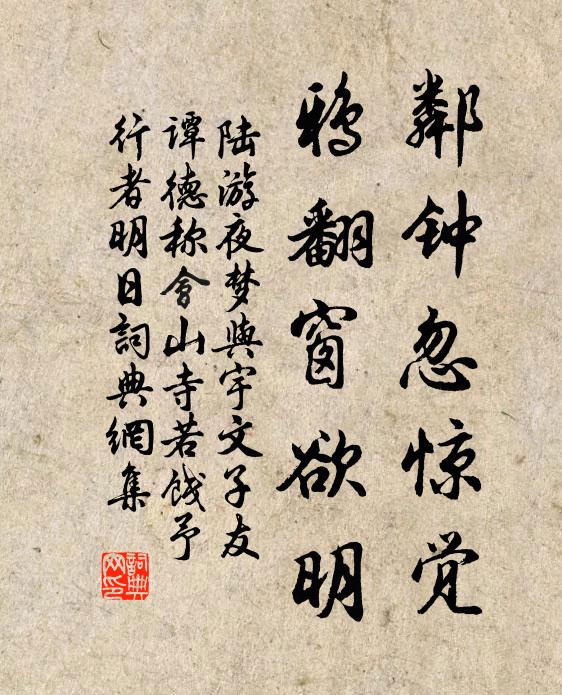 鄰钟忽惊觉
鸦翻窗欲明
陆游夜梦與宇文子友
谭德称會山寺若餞予
行者明日詞典網集
詞典
网印